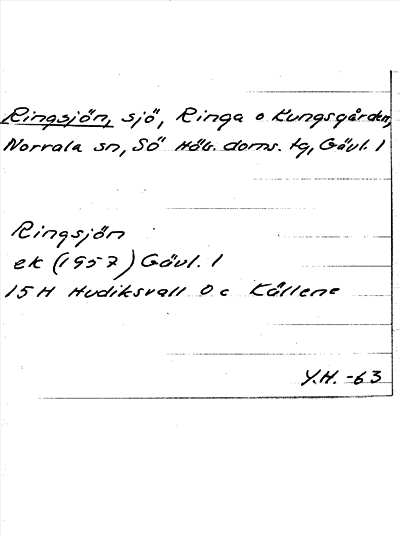 Ringsjön, sjö, Ringa o Kungsgården,
Norrala sn, Sö Häls. doms. tg, Gävl. l
Ringsjön
ek (1957) Gävl. l
15H Hudiksvall 0c Källene
Y.H. -63